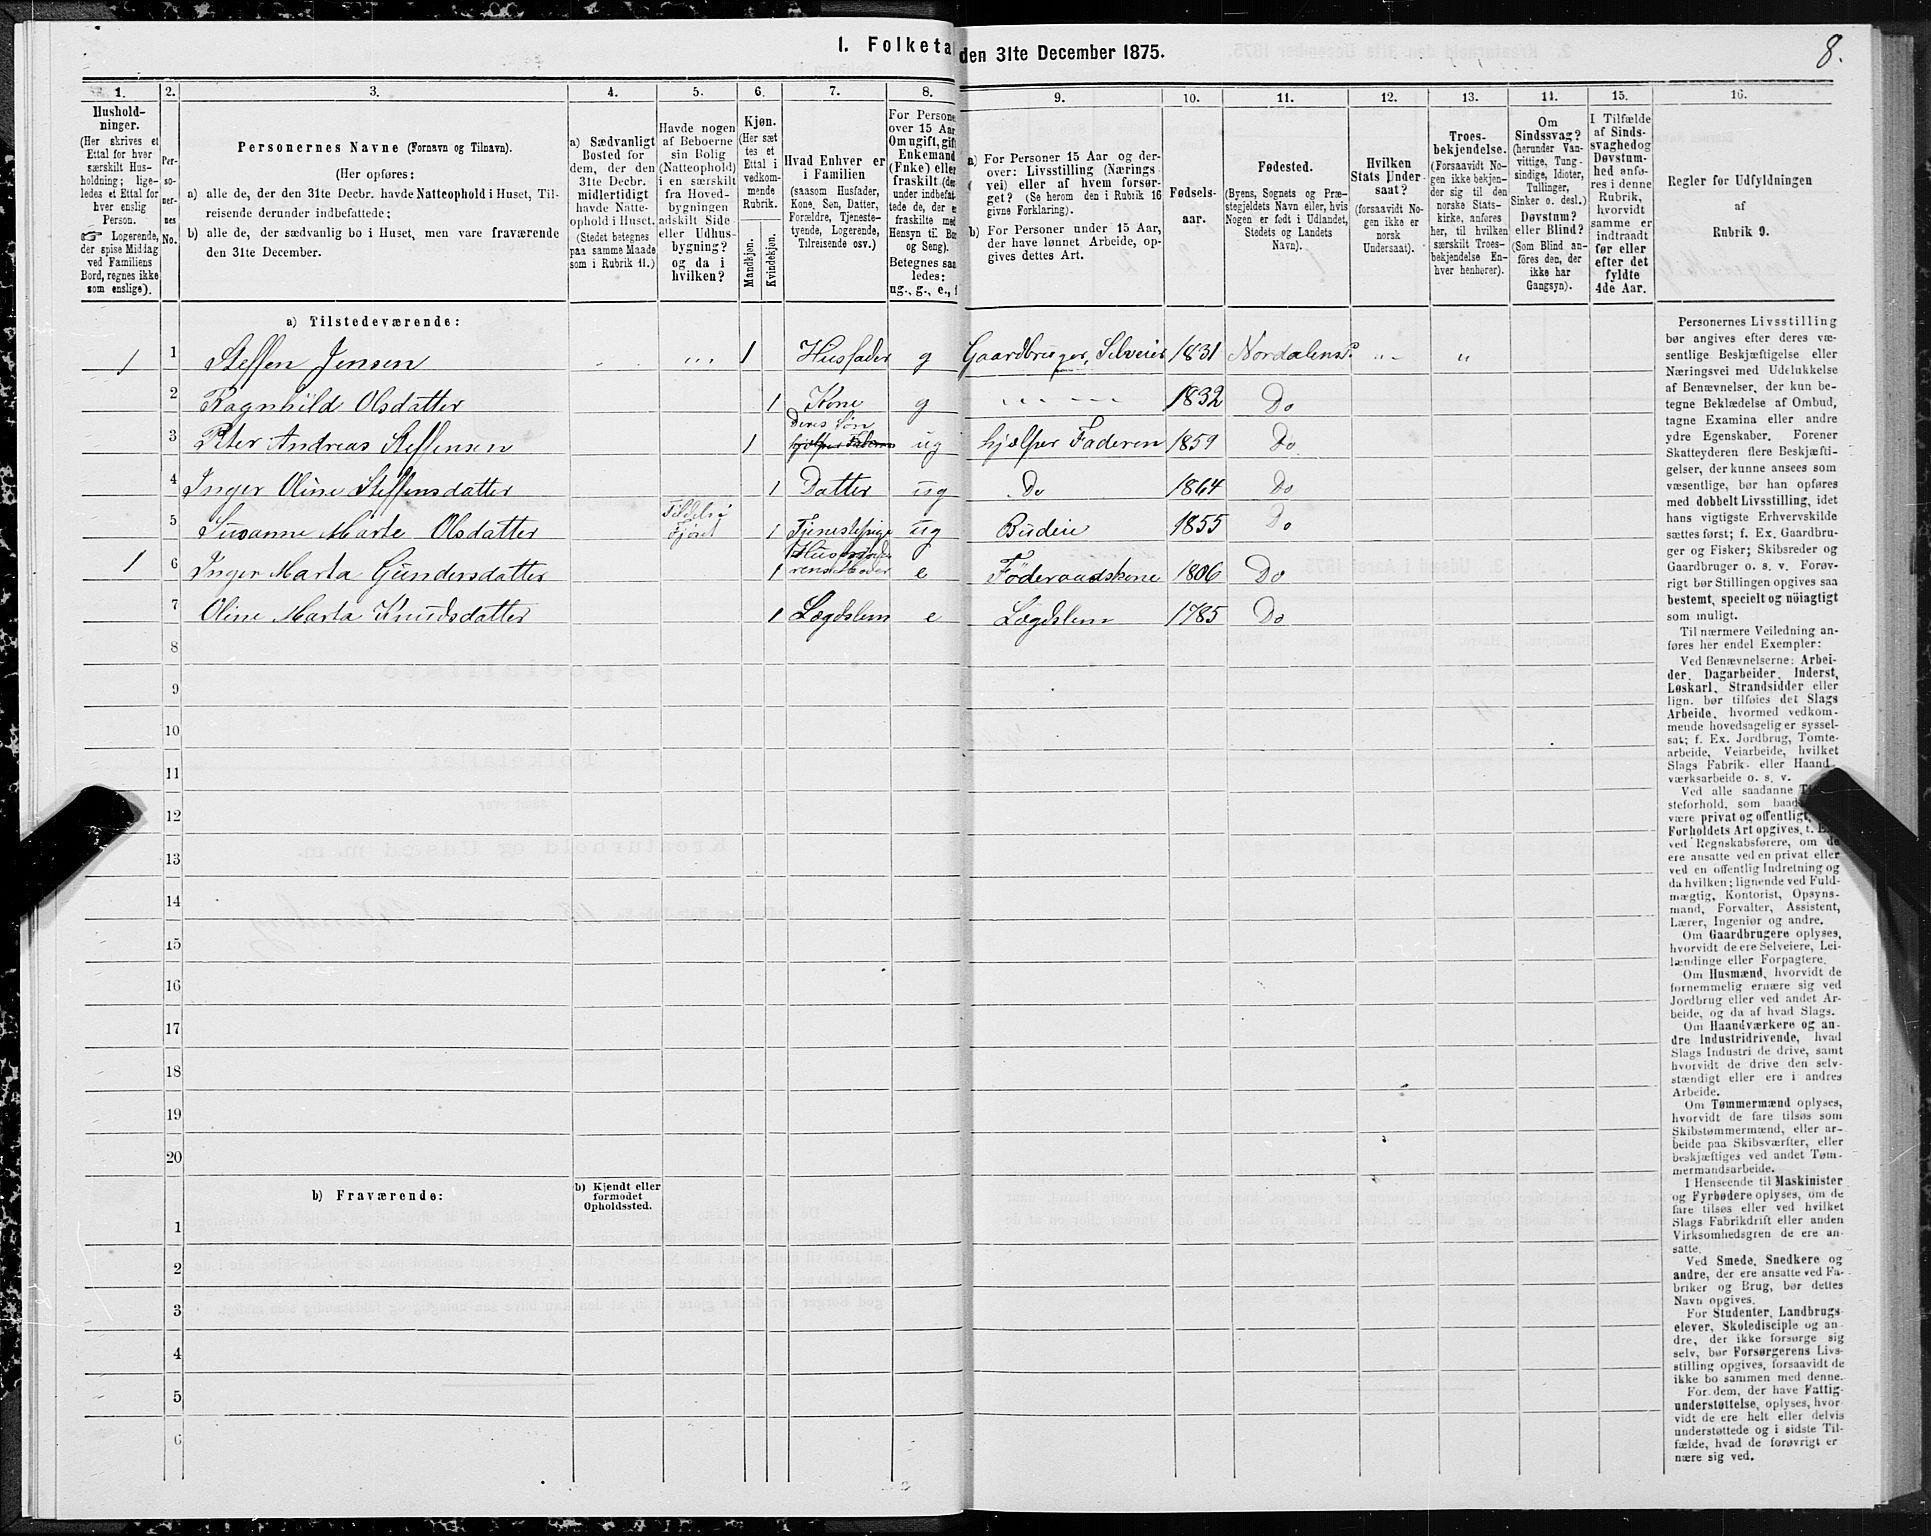 I. Folketal den 31te December 1875.
8.
1.
Hushold-
ninger.
(Her skrives et
Ettal for hver
særskilt Hus-
holdning; lige-
ledes et Ettal for
hver enslig
Person.
☞ Logerende,
der spise Middag
ved Familiens
Bord, regnes ikke
som enslige).
2.
Per-
so-
ner-
nes
No.
3.
Personernes Navne (Fornavn og Tilnavn).
(Her opføres:
a) alle de, der den 31te Decbr. havde Natteophold i Huset, Til-
reisende derunder indbefattede;
b) alle de, der sædvanlig bo i Huset, men vare fraværende
den 31te December.
4.
a) Sædvanligt
Bosted for
dem, der den
31te Decbr.
midlertidigt
havde Natte-
ophold i Huset.
(Stedet betegnes
paa samme Maade
som i Rubrik 11.)
5.
Havde nogen
af Beboerne
sin Bolig
(Natteophold)
i en særskilt
fra Hoved-
bygningen
adskilt Side-
eller Udhus-
bygning?
og da i
hvilken?
6.
Kjøn.
(Her sæt-
tes et
Ettal i
vedkom-
mende
Rubrik.
Mandkjøn.
Kvindekjøn.
7.
Hvad Enhver er
i Familien
(saasom Husfader,
Kone, Søn, Datter,
Forældre, Tjeneste-
tyende, Logerende,
Tilreisende osv.)
8.
For Persone
over 15 Aar
Om ugift, gift
Enkemand
(Enke) eller
fraskilt (de
under indbefat
tede de, der e
fraskilte med
Hensyn til Bo
og Seng).
Betegnes saa
ledes:
ug., g., e., f
9.
a) For Personer 15 Aar og der-
over: Livsstilling (Nærings-
vei) eller af hvem forsør-
get? (Se herom den i Rubrik 16
givne Forklaring).
b) For Personer under 15 Aar,
der have lønnet Arbeide, op-
gives dettes Art.
10.
Fødsels-
aar.
11.
Fødested.
(Byens, Sognets og Præ-
stegjeldets Navn eller, hvis
Nogen er født i Udlandet,
Stedets og Landets
Navn).
12.
Hvilken
Stats Under-
saat?
(forsaavidt No-
gen ikke er
norsk
Undersaat).
13.
Troes-
bekjendelse.
(Forsaavidt No-
gen ikke bekjen-
der sig til den
norske Stats-
kirke, anføres
her, til hvilken
særskilt Troes-
bekjendelse En-
hver henhører).
14.
Om
Sindssvag?
(herunder Van-
vittige, Tung-
sindige, Idioter,
Tullinger,
Sinker o. desl.)
Døvstum?
eller Blind?
(Som Blind an-
føres den, der
ikke har
Gangsyn).
15.
I Tilfælde
af Sinds-
svaghed og
Døvstum-
hed anfø-
res i denne
Rubrik,
hvorvidt
samme er
indtraadt
før eller
efter det
fyldte
4de Aar.
16.
Regler for Udfyldningen
af
Rubrik 9.
a) Tilstedeværende:
1 1 Steffen Jensen ... 1 Husfader g Gaardbruger, Selveier 1831 Nordalens P. ... "
2 Ragnhild Olsdatter 1 Kone g ... 1832 Do
3 Peter Andreas Steffensen 1 Deres Søn hjælper Faderen ug hjælper Faderen 1859 Do
4 Inger Oline Steffensdatter 1 Datter ug Do 1864 Do
5 Susanne Marte Olsdatter Tildels i Fjøset 1 Tjenestepige ug Budeie 1855 Do
1 6 Inger Marta Gundersdatter 1 Husfaderens Moder e Föderaadskone 1806 Do
7 Oline Marta Knudsdatter 1 Lægdslem e Lægdslem 1785 Do
8
9
10
11
12
13
14
15
16
17
18
19
20
b) Fraværende:
b) Kjendt eller
formodet
Opholdssted.
1
2
3
4
5
6
Personernes Livsstilling
bør angives efter deres væ-
sentlige Beskjæftigelse eller
Næringsvei med Udelukkelse
af Benævnelser, der kun be-
tegne Beklædelse af Ombud,
tagne Examina eller andre
ydre Egenskaber. Forener
Skatteyderen flere Beskjæfti-
gelser, der kunne ansees som
væsentlige, bør han opføres
med dobbelt Livsstilling, idet
hans vigtigste Erhvervskilde
sættes først; f. Ex. Gaardbru-
ger og Fisker; Skibsreder og
Gaardbruger o. s. v. Forøv-
rigt bør Stillingen opgives saa
bestemt, specielt og nöiagtigt
som muligt.
Til nærmere Veiledning an-
føres her endel Exempler:
Ved Benævnelserne: Arbei-
der, Dagarbeider, Inderst,
Løskarl, Strandsidder eller
lign. bør tilføies det Slags
Arbeide, hvormed vedkom-
mende hovedsagelig er syssel-
sat; f. Ex. Jordbrug, Tomte-
arbeide, Veiarbeide, hvilket
Slags Fabrik- eller Haand-
værksarbeide o. s. v.
Ved alle saadanne
steforhold, som baade
være privat og offentligt,
Forholdets Art opgives, t. Ex.
ved Regnskabsførere, om de
ere ansatte ved en privat eller
ved en offentlig Indretning og
da hvilken; lignende ved Fuld-
mægtig, Kontorist, Opsyns-
mand, Forvalter, Assistent,
Lærer, Ingeniør og andre.
Om Gaardbrugere oplyses,
hvorvidt de ere Selveiere, Lei-
lændinge eller Forpagtere.
Om Husmænd, hvorvidt de
fornemmelig ernære sig ved
Jordbrug eller ved andet Ar-
beide, og da af hvad Slags.
Om Haandværkere og an-
dre Industridrivende, hvad
Slags Industri de drive, samt
hvorvidt de drive den selv-
stændigt eller ere i andres
Arbeide.
Om Tømmermænd oplyses,
hvorvidt de fare tilsøs som
Skibstømmermænd, eller ar-
beide paa Skibsværfter, eller
beskjæftiges ved andet Tøm-
mermandsarbeide.
I Henseende til Maskinister
og Fyrbødere oplyses, om de
fare tilsøs eller ved hvilket
Slags Fabrikdrift eller anden
Virksomhedsgren de ere an-
satte.
Ved Smede, Snedkere og
andre, der ere ansatte ved Fa-
briker og Brug, bør dettes
Navn opgives.
For Studenter, Landbrugs-
elever, Skoledisciple og an-
dre, der ikke forsørge sig
selv, bør Forsørgerens Livs-
stilling opgives, forsaavidt de
ikke bo sammen med denne.
For dem, der have Fattig-
understøttelse, oplyses, hvor-
vidt de ere helt eller delvis
understøttede og i sidste Til-
fælde, hvad de forøvrigt er
nære sig ved.